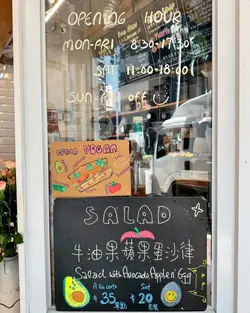 OPENING HOUR
MON-FRI 8:30-17:30
SAT 11:00-18:00
SUN off
VEGAN
SALAD
牛油果蘋果蛋沙律
Salad with Avocado Apple n' Egg
A la carte Set
$35 $20